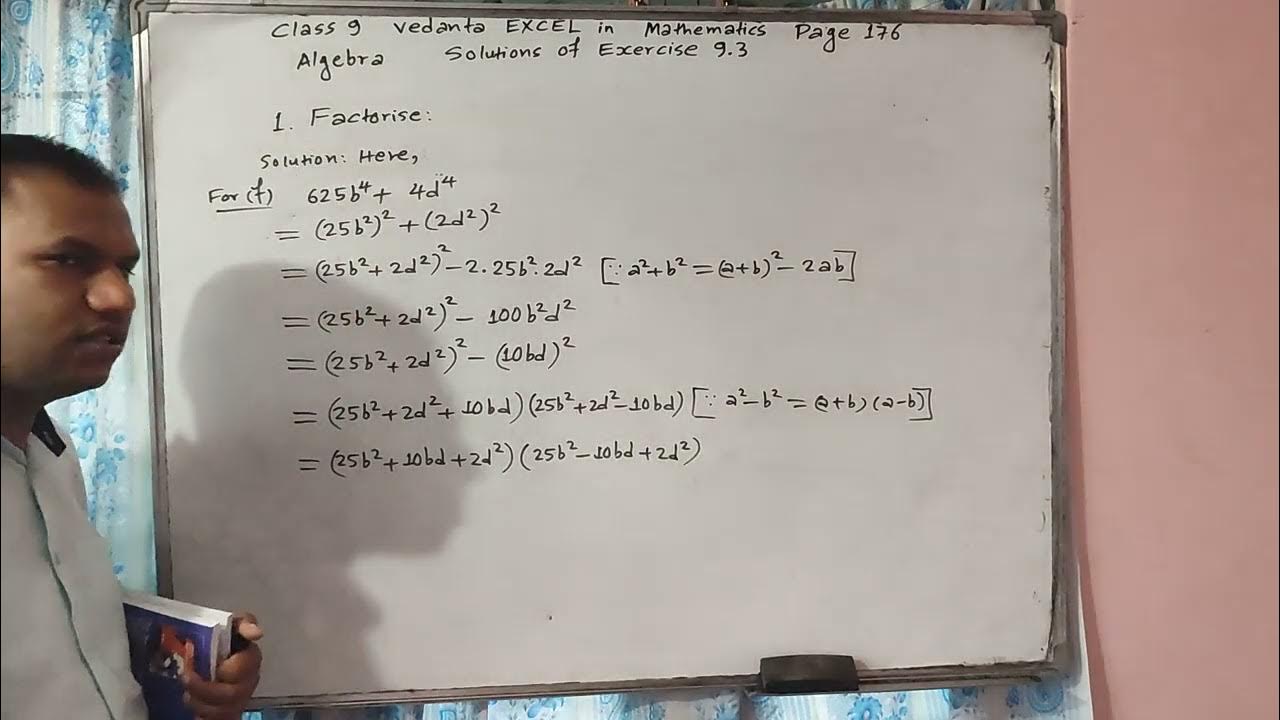 Class 9 Vedanta EXCEL in Mathematics Page 176
Algebra Solutions of Exercise 9.3
1. Factorise:
Solution: Here,
For (f) 625b⁴ + 4d⁴
= (25b²)² + (2d²)²
= (25b² + 2d²)² – 2.25b².2d² [∵ a²+b² = (a+b)² – 2ab]
= (25b² + 2d²)² – 100b²d²
= (25b² + 2d²)² – (10bd)²
= (25b² + 2d² + 10bd) (25b² + 2d² – 10bd) [∵ a² – b² = (a+b) (a–b)]
= (25b² + 10bd + 2d²) (25b² – 10bd + 2d²)